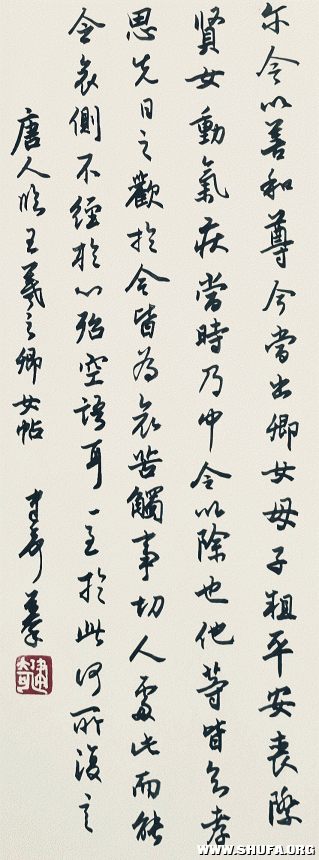 尔令以善和尊今當出卿女母子粗平安喪際
賢女動氣疾當時乃仲令以除也他等皆孝
思先日之歡於今皆為哀苦觸事切人處此而能
令哀側不經於心殆空語耳一至於此何所復之
唐人臨王羲之卿女帖 建奇摹
建奇
WWW.SHUFA.ORG